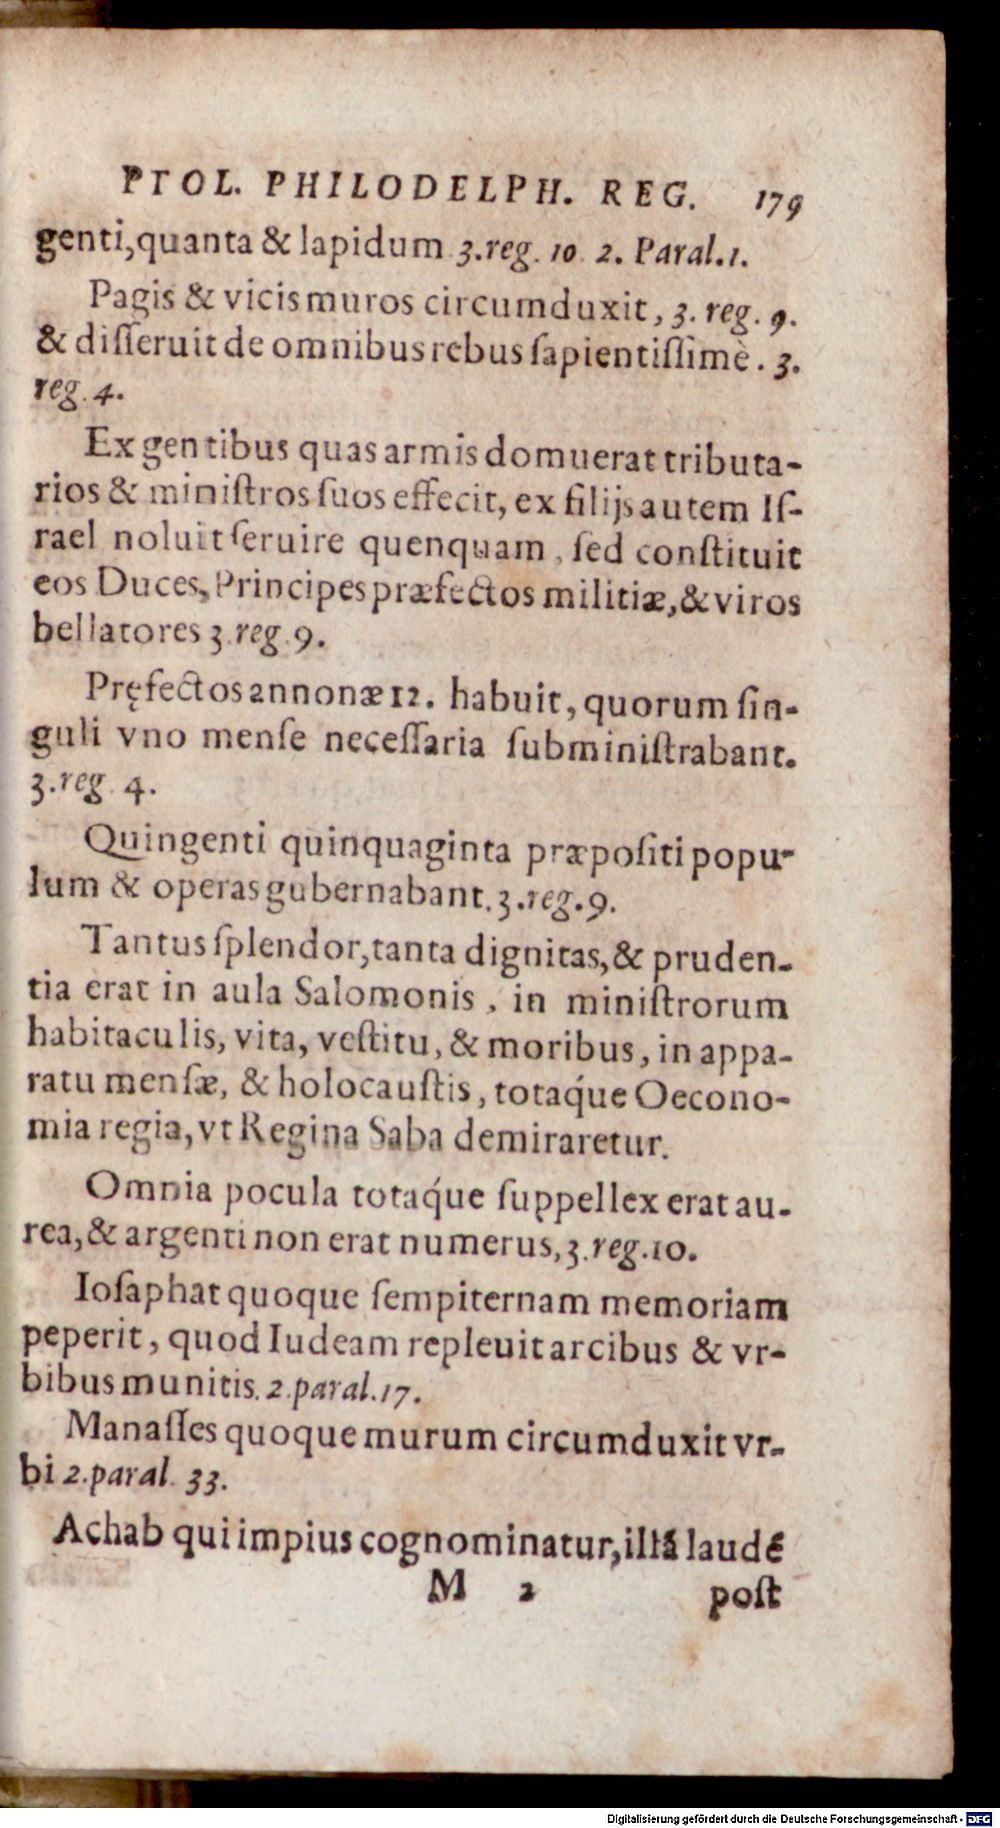 PTOL. PHILODELPH. REG. 179
genti, quanta & lapidum 3.reg. 10 2. Paral.1.
Pagis & vicis muros circumduxit, 3. reg. 9.
& disseruit de omnibus rebus sapientissimè. 3.
reg. 4.
Ex gentibus quas armis domuerat tributa-
rios & ministros suos effecit, ex filijs autem Is-
rael noluit seruire quenquam, sed constituit
eos Duces, Principes præfectos militiæ, & viros
bellatores 3.reg.9.
Pręfectos annonæ 12. habuit, quorum sin-
guli vno mense necessaria subministrabant.
3.reg. 4.
Quingenti quinquaginta præpositi popu-
lum & operas gubernabant. 3.reg.9.
Tantus splendor, tanta dignitas, & pruden-
tia erat in aula Salomonis, in ministrorum
habitaculis, vita, vestitu, & moribus, in appa-
ratu mensæ, & holocaustis, totaq́ue Oecono-
mia regia, vt Regina Saba demiraretur.
Omnia pocula totaq́ue suppellex erat au-
rea, & argenti non erat numerus, 3.reg.10.
Iosaphat quoque sempiternam memoriam
peperit, quod Iudeam repleuit arcibus & vr-
bibus munitis. 2.paral.17.
Manasses quoque murum circumduxit vr-
bi 2.paral. 33.
Achab qui impius cognominatur, istá laudé
M 2 post
Digitalisierung gefördert durch die Deutsche Forschungsgemeinschaft - DFG